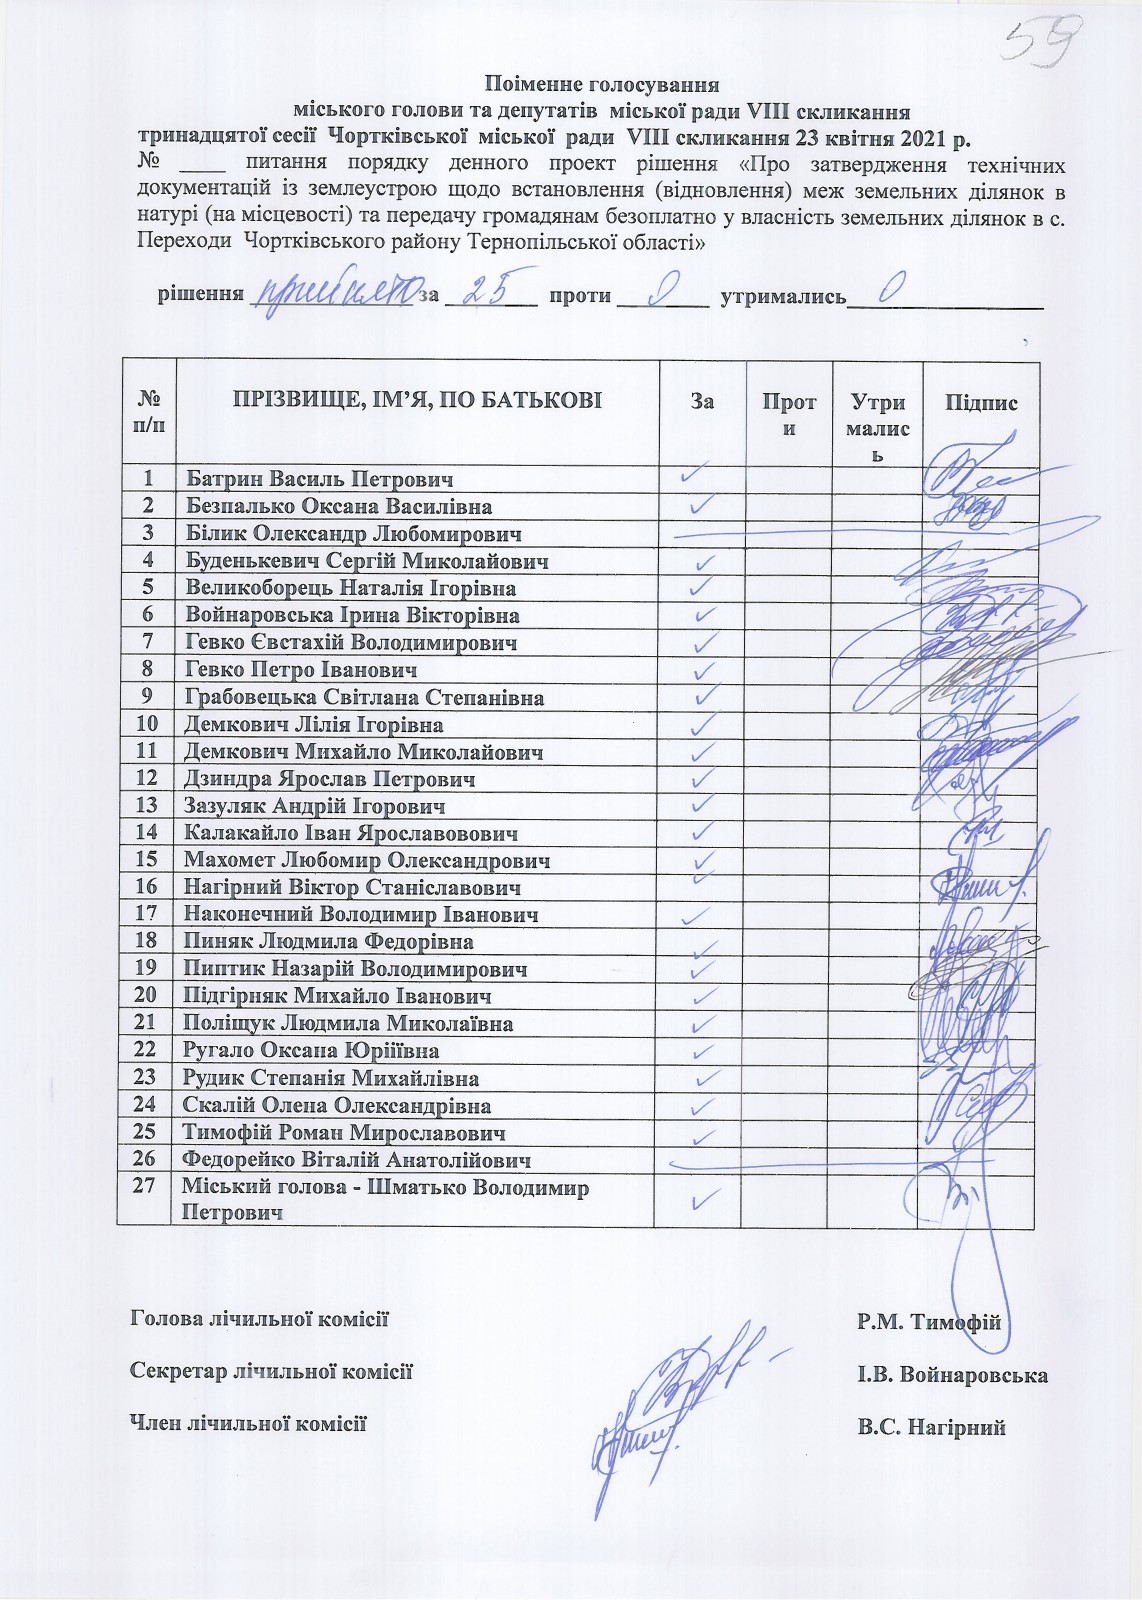 59
Поіменне голосування
міського голови та депутатів міської ради VIII скликання
тринадцятої сесії Чортківської міської ради VIII скликання 23 квітня 2021 р.
№ ____ питання порядку денного проект рішення «Про затвердження технічних
документацій із землеустрою щодо встановлення (відновлення) меж земельних ділянок в
натурі (на місцевості) та передачу громадянам безоплатно у власність земельних ділянок в с.
Переходи Чортківського району Тернопільської області»
рішення прийнято за 25 проти 0 утримались 0
№ п/п ПРІЗВИЩЕ, ІМ’Я, ПО БАТЬКОВІ За Проти Утримались Підпис
1 Батрин Василь Петрович
2 Безпалько Оксана Василівна
3 Білик Олександр Любомирович
4 Буденькевич Сергій Миколайович
5 Великоборець Наталія Ігорівна
6 Войнаровська Ірина Вікторівна
7 Гевко Євстахій Володимирович
8 Гевко Петро Іванович
9 Грабовецька Світлана Степанівна
10 Демкович Лілія Ігорівна
11 Демкович Михайло Миколайович
12 Дзиндра Ярослав Петрович
13 Зазуляк Андрій Ігорович
14 Калакайло Іван Ярославовович
15 Махомет Любомир Олександрович
16 Нагірний Віктор Станіславович
17 Наконечний Володимир Іванович
18 Пиняк Людмила Федорівна
19 Пиптик Назарій Володимирович
20 Підгірняк Михайло Іванович
21 Поліщук Людмила Миколаївна
22 Ругало Оксана Юріїівна
23 Рудик Степанія Михайлівна
24 Скалій Олена Олександрівна
25 Тимофій Роман Мирославович
26 Федорейко Віталій Анатолійович
27 Міський голова - Шматько Володимир
Петрович
Голова лічильної комісії Р.М. Тимофій
Секретар лічильної комісії І.В. Войнаровська
Член лічильної комісії В.С. Нагірний